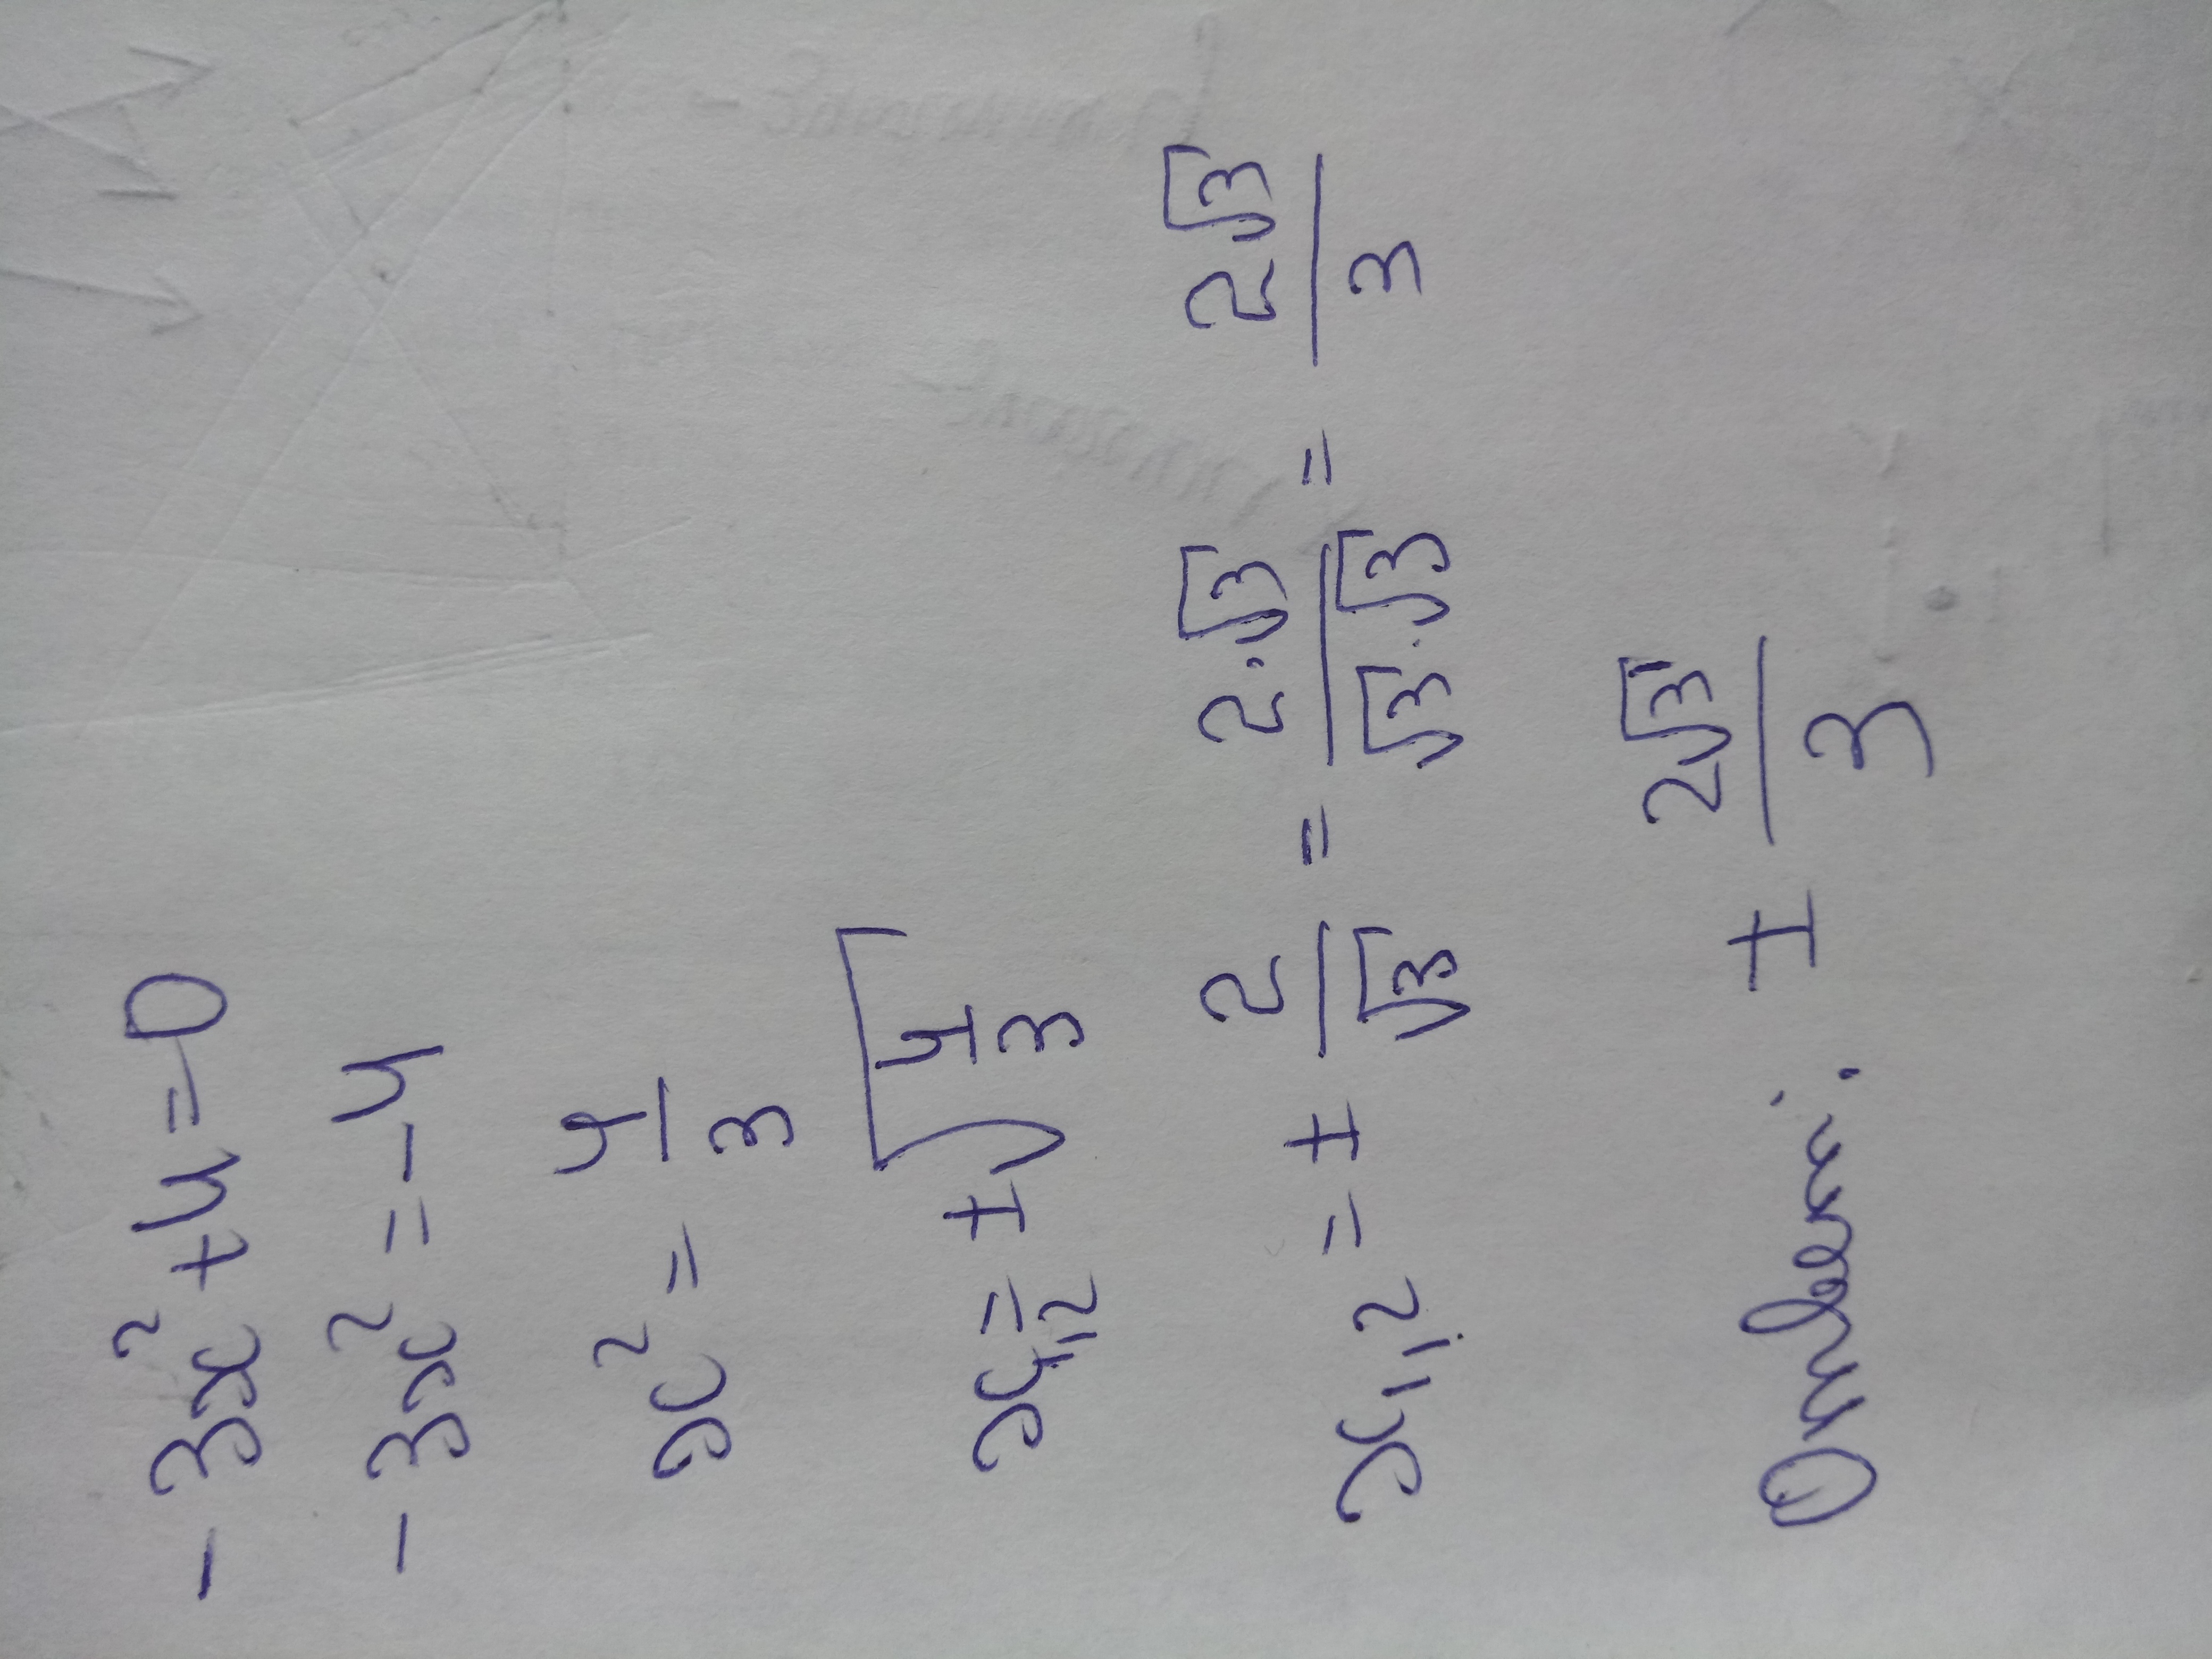 -3x²+4=0
-3x²=-4
x² = 4/3
x₁,₂ = ±√(4/3)
x₁,₂ = ± 2/√3 = 2·√3/√3·√3 = 2√3/3
Ответ: ± 2√3/3